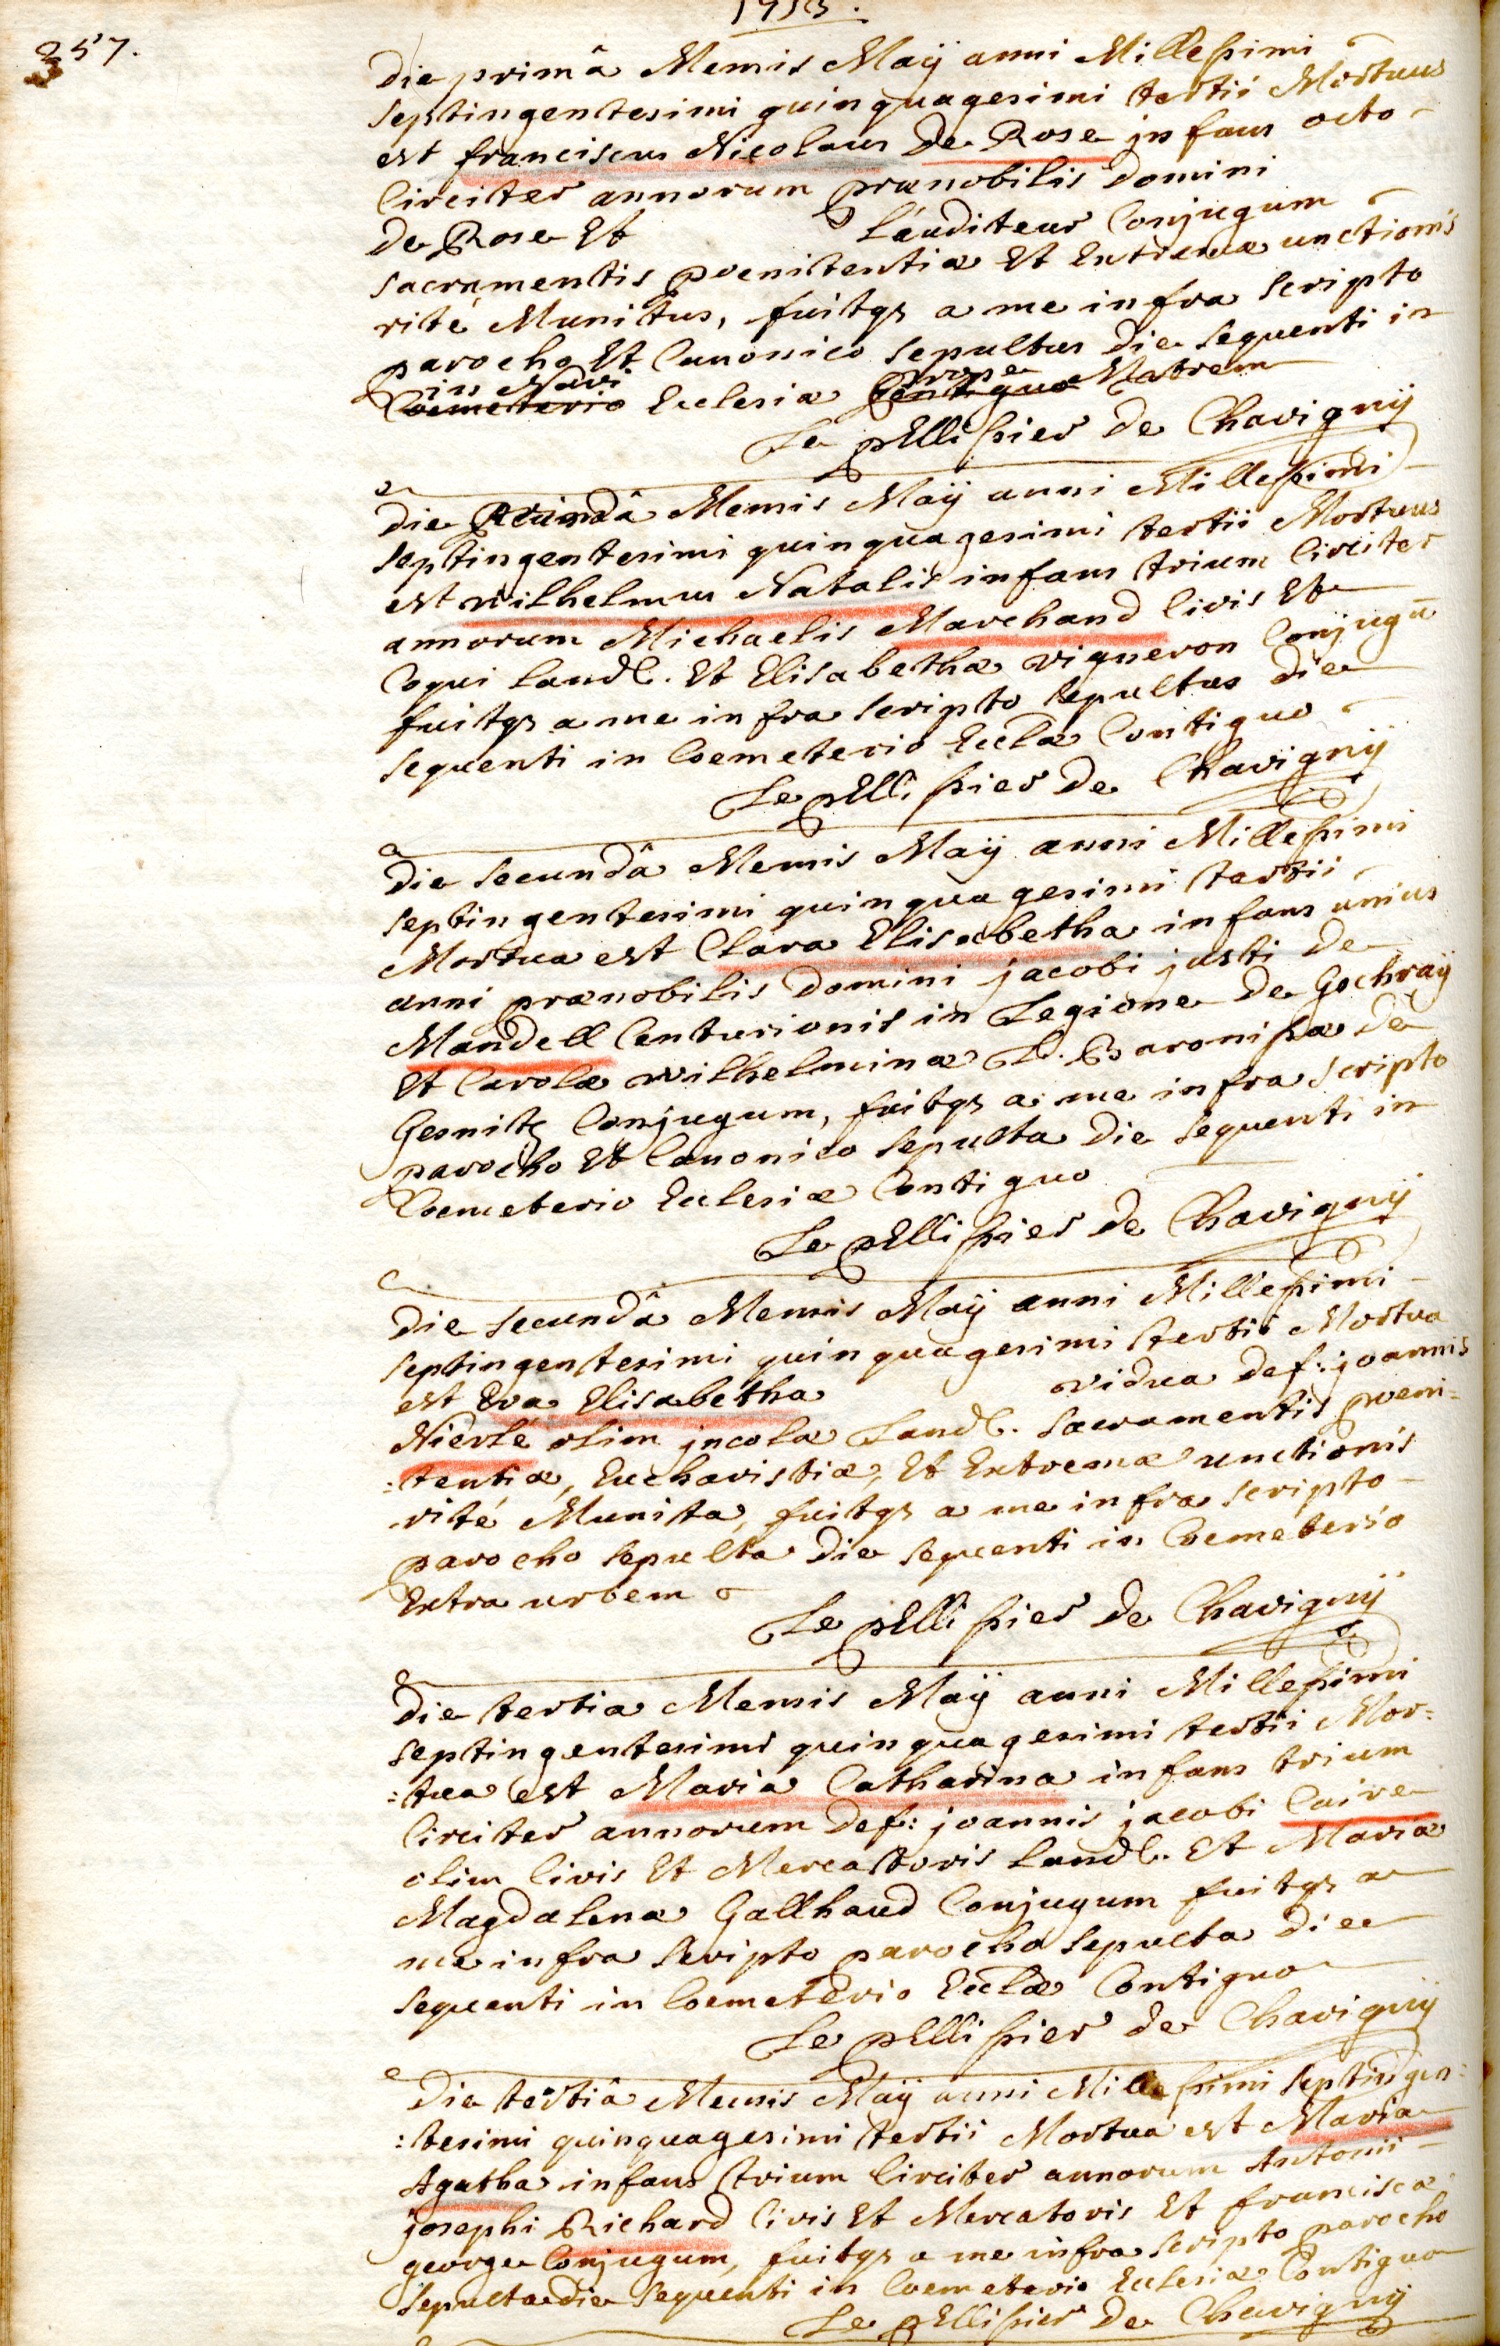 1753.
357.
Die primâ Mensis Maij anni Millessimi
septingentesimi quinquagesimi tertii Mortuus
est franciscus Nicolaus De Rose infans octo
Circiter annorum prænobilis Domini
De Rose Et L'auditeur Conjugum
sacramentis pœnitentiæ Et Extremæ unctionis
rité Munitus, fuitq3 a me infra scripto
parocho Et Canonico sepultus Die sequenti in
in Navi prope
Coemeterio Ecclesiæ Contiguo Matrem
Le pEllissier De Chavignÿ
Die secundâ Mensis Maij anni Millessimi
septingentesimi quinquagesimi tertii Mortuus
est wilhelmus Natalis infans trium Circiter
annorum Michaelis Marchand Civis Et
Coqui Landl. Et Elisabethæ vigneron Conjugū
fuitq3 a me infra scripto sepultus Die
sequenti in Coemeterio Eccłæ Contiguo
Le pEllissier De Chavignÿ
Die secundâ Mensis Maij anni Millessimi
septingentesimi quinquagesimi tertii
Mortua est Clara Elisabetha infans unius
anni prænobilis Domini jacobi justi De
Mandell Centurionis in Legione De Gochraÿ
Et Carolæ wilhelminæ L. Baronissæ De
Gesnitz Conjugum, fuitq3 a me infra scripto
parocho Et Canonico sepulta Die sequenti in
Coemeterio Ecclesiæ Contiguo
Le pEllissier De Chavignÿ
Die secundâ Mensis Maij anni Millessimi
septingentesimi quinquagesimi tertii Mortua
est Eva Elisabetha vidua Def: joannis
Nierlé olim incolæ Landl. sacramentis pœni=
:tentiæ, Eucharistiæ, Et Extremæ unctionis
rité Munita, fuitq3 a me infra scripto
parocho sepulta Die sequenti in Coemeterio
Extra urbem
Le pEllissier De Chavignÿ
Die tertia Mensis Maij anni Millessimi
septingentesimi quinquagesimi tertii Mor=
:tua est Maria Catharina infans trium
Circiter annorum Def: joannis jacobi Caire
olim Civis Et Mercatoris Landl. Et Mariæ
Magdalenæ Gallhaud Conjugum fuitq3 a
me infra scripto parocho sepulta Die
sequenti in Coemeterio Eccłæ Contiguo
Le pEllissier De Chavignÿ
Die tertiâ Mensis Maij anni Millessimi septingen:
:tesimi quinquagesimi tertii Mortua est Maria
Agatha infans trium Circiter annorum Antonii
josephi Richard Civis Et Mercatoris Et franciscæ
george Conjugum, fuitq3 a me infra scripto parocho
sepulta die sequenti in Coemeterio Ecclesiæ Contiguo
Le pEllissier De Chavignÿ